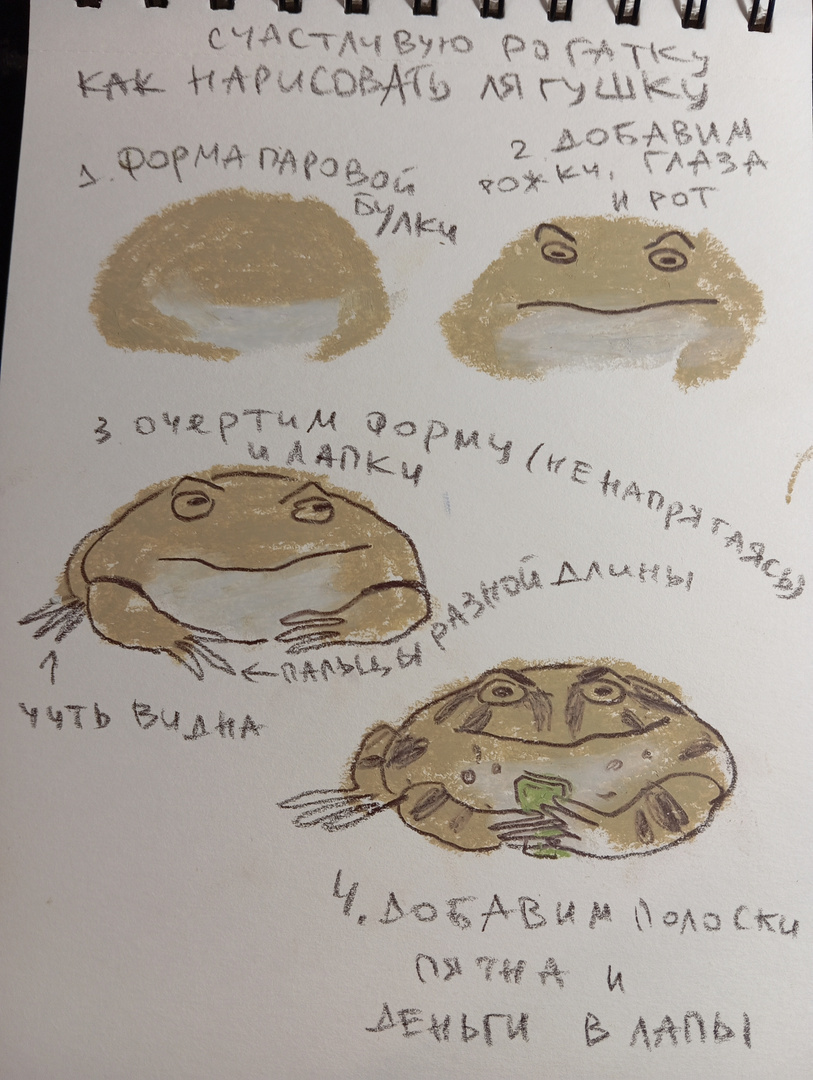 СЧАСТЛИВУЮ РОГАТКУ
КАК НАРИСОВАТЬ ЛЯГУШКУ
1. ФОРМА ПАРОВОЙ
БУЛКИ
2 ДОБАВИМ
РОЖКИ, ГЛАЗА
И РОТ
3 ОЧЕРТИМ ФОРМУ (НЕ НАПРЯГАЯСЬ)
И ЛАПКИ
ПАЛЬЦЫ РАЗНОЙ ДЛИНЫ
ЧУТЬ ВИДНА
4. ДОБАВИМ ПОЛОСКИ
ПЯТНА И
ДЕНЬГИ В ЛАПЫ